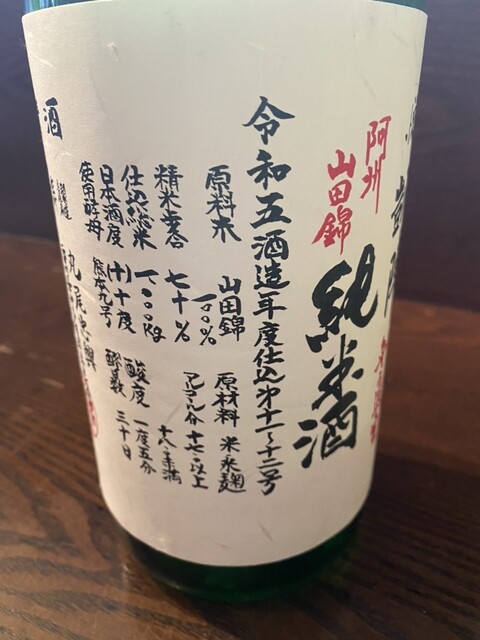 阿州
山田錦
純米酒
令和五酒造年度仕込第十一〜十二号
原料米 山田錦 一〇〇%
原材料 米 米麹
精米歩合 七十%
アルコール分 十七以上
十八未満
仕込総米 一〇〇〇kg
酸度 一度五分
日本酒度 (十)十度
醪日数 三十日
使用酵母 熊本九号
酒